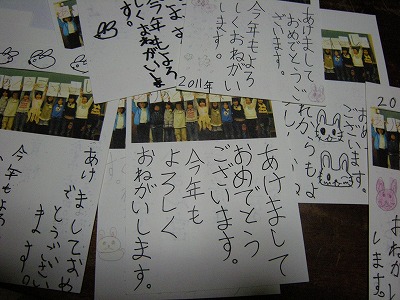 だよ
今年もよろ
しくおねがいしま
あけまして、
おめでとう
ございます。
今年もよろ
しくおねがい
します。
2011年
あけまして
おめでとう
ございます。
今年も
よろしく
おねがいします。
ございます。
れからもよ
あけましておめ
でとうござい
ます。
今年もよろ
20
おねがい
します。